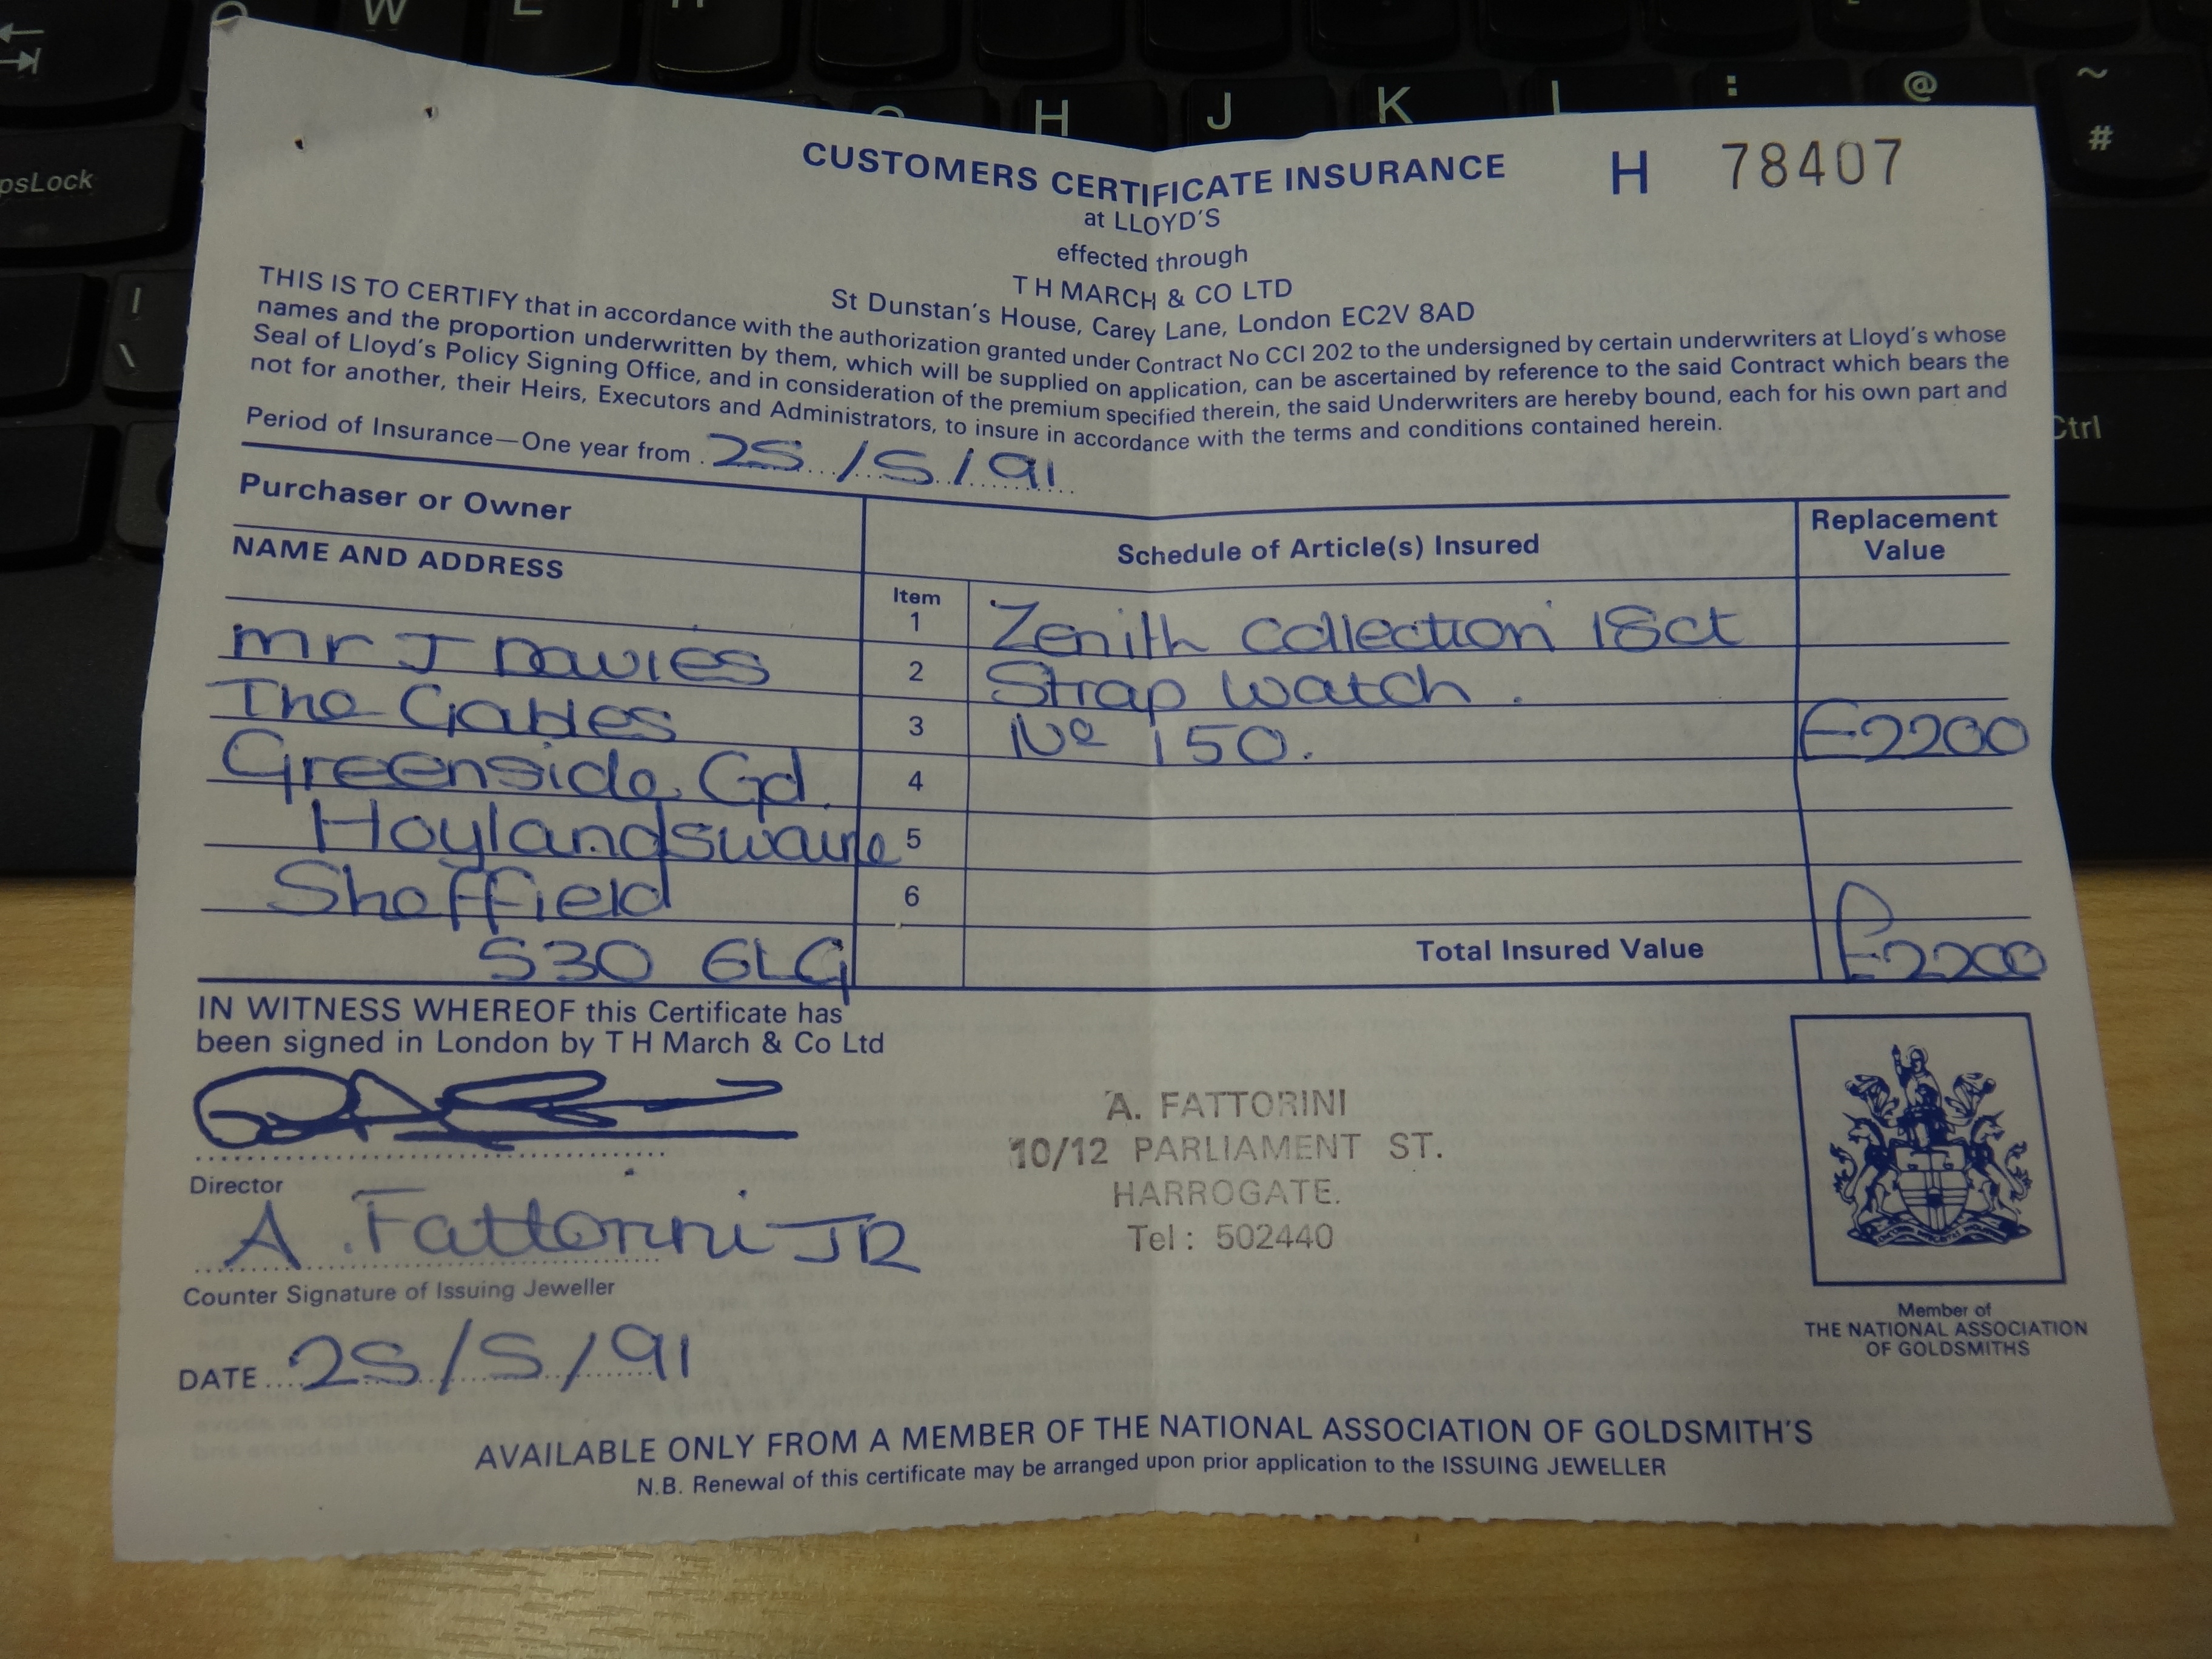 W
H J K L : @ ~
#
psLock
|
\
Ctrl
CUSTOMERS CERTIFICATE INSURANCE H 78407
at LLOYD'S
effected through
T H MARCH & CO LTD
St Dunstan's House, Carey Lane, London EC2V 8AD
THIS IS TO CERTIFY that in accordance with the authorization granted under Contract No CCI 202 to the undersigned by certain underwriters at Lloyd's whose
names and the proportion underwritten by them, which will be supplied on application, can be ascertained by reference to the said Contract which bears the
Seal of Lloyd's Policy Signing Office, and in consideration of the premium specified therein, the said Underwriters are hereby bound, each for his own part and
not for another, their Heirs, Executors and Administrators, to insure in accordance with the terms and conditions contained herein.
Period of Insurance—One year from 25/5/91
Purchaser or Owner
NAME AND ADDRESS
Schedule of Article(s) Insured
Replacement
Value
Item
mr J Davies
The Gables
Greenside Gd.
Hoylandswaine
Sheffield
S30 6LG
1 Zenith Collection 18ct
2 Strap Watch.
3 Nº 150. £2200
4
5
6
Total Insured Value £2200
IN WITNESS WHEREOF this Certificate has
been signed in London by T H March & Co Ltd
Director
A. Fattorini JR
Counter Signature of Issuing Jeweller
DATE 25/5/91
A. FATTORINI
10/12 PARLIAMENT ST.
HARROGATE.
Tel: 502440
Member of
THE NATIONAL ASSOCIATION
OF GOLDSMITHS
AVAILABLE ONLY FROM A MEMBER OF THE NATIONAL ASSOCIATION OF GOLDSMITH'S
N.B. Renewal of this certificate may be arranged upon prior application to the ISSUING JEWELLER